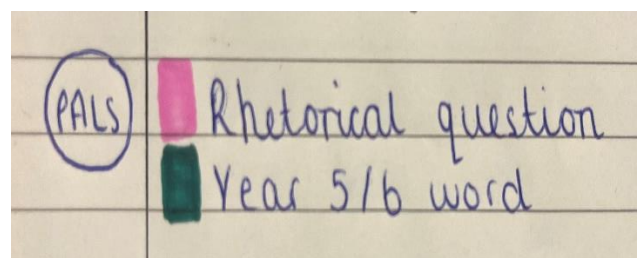 PALS Rhetorical question
Year 5/6 word